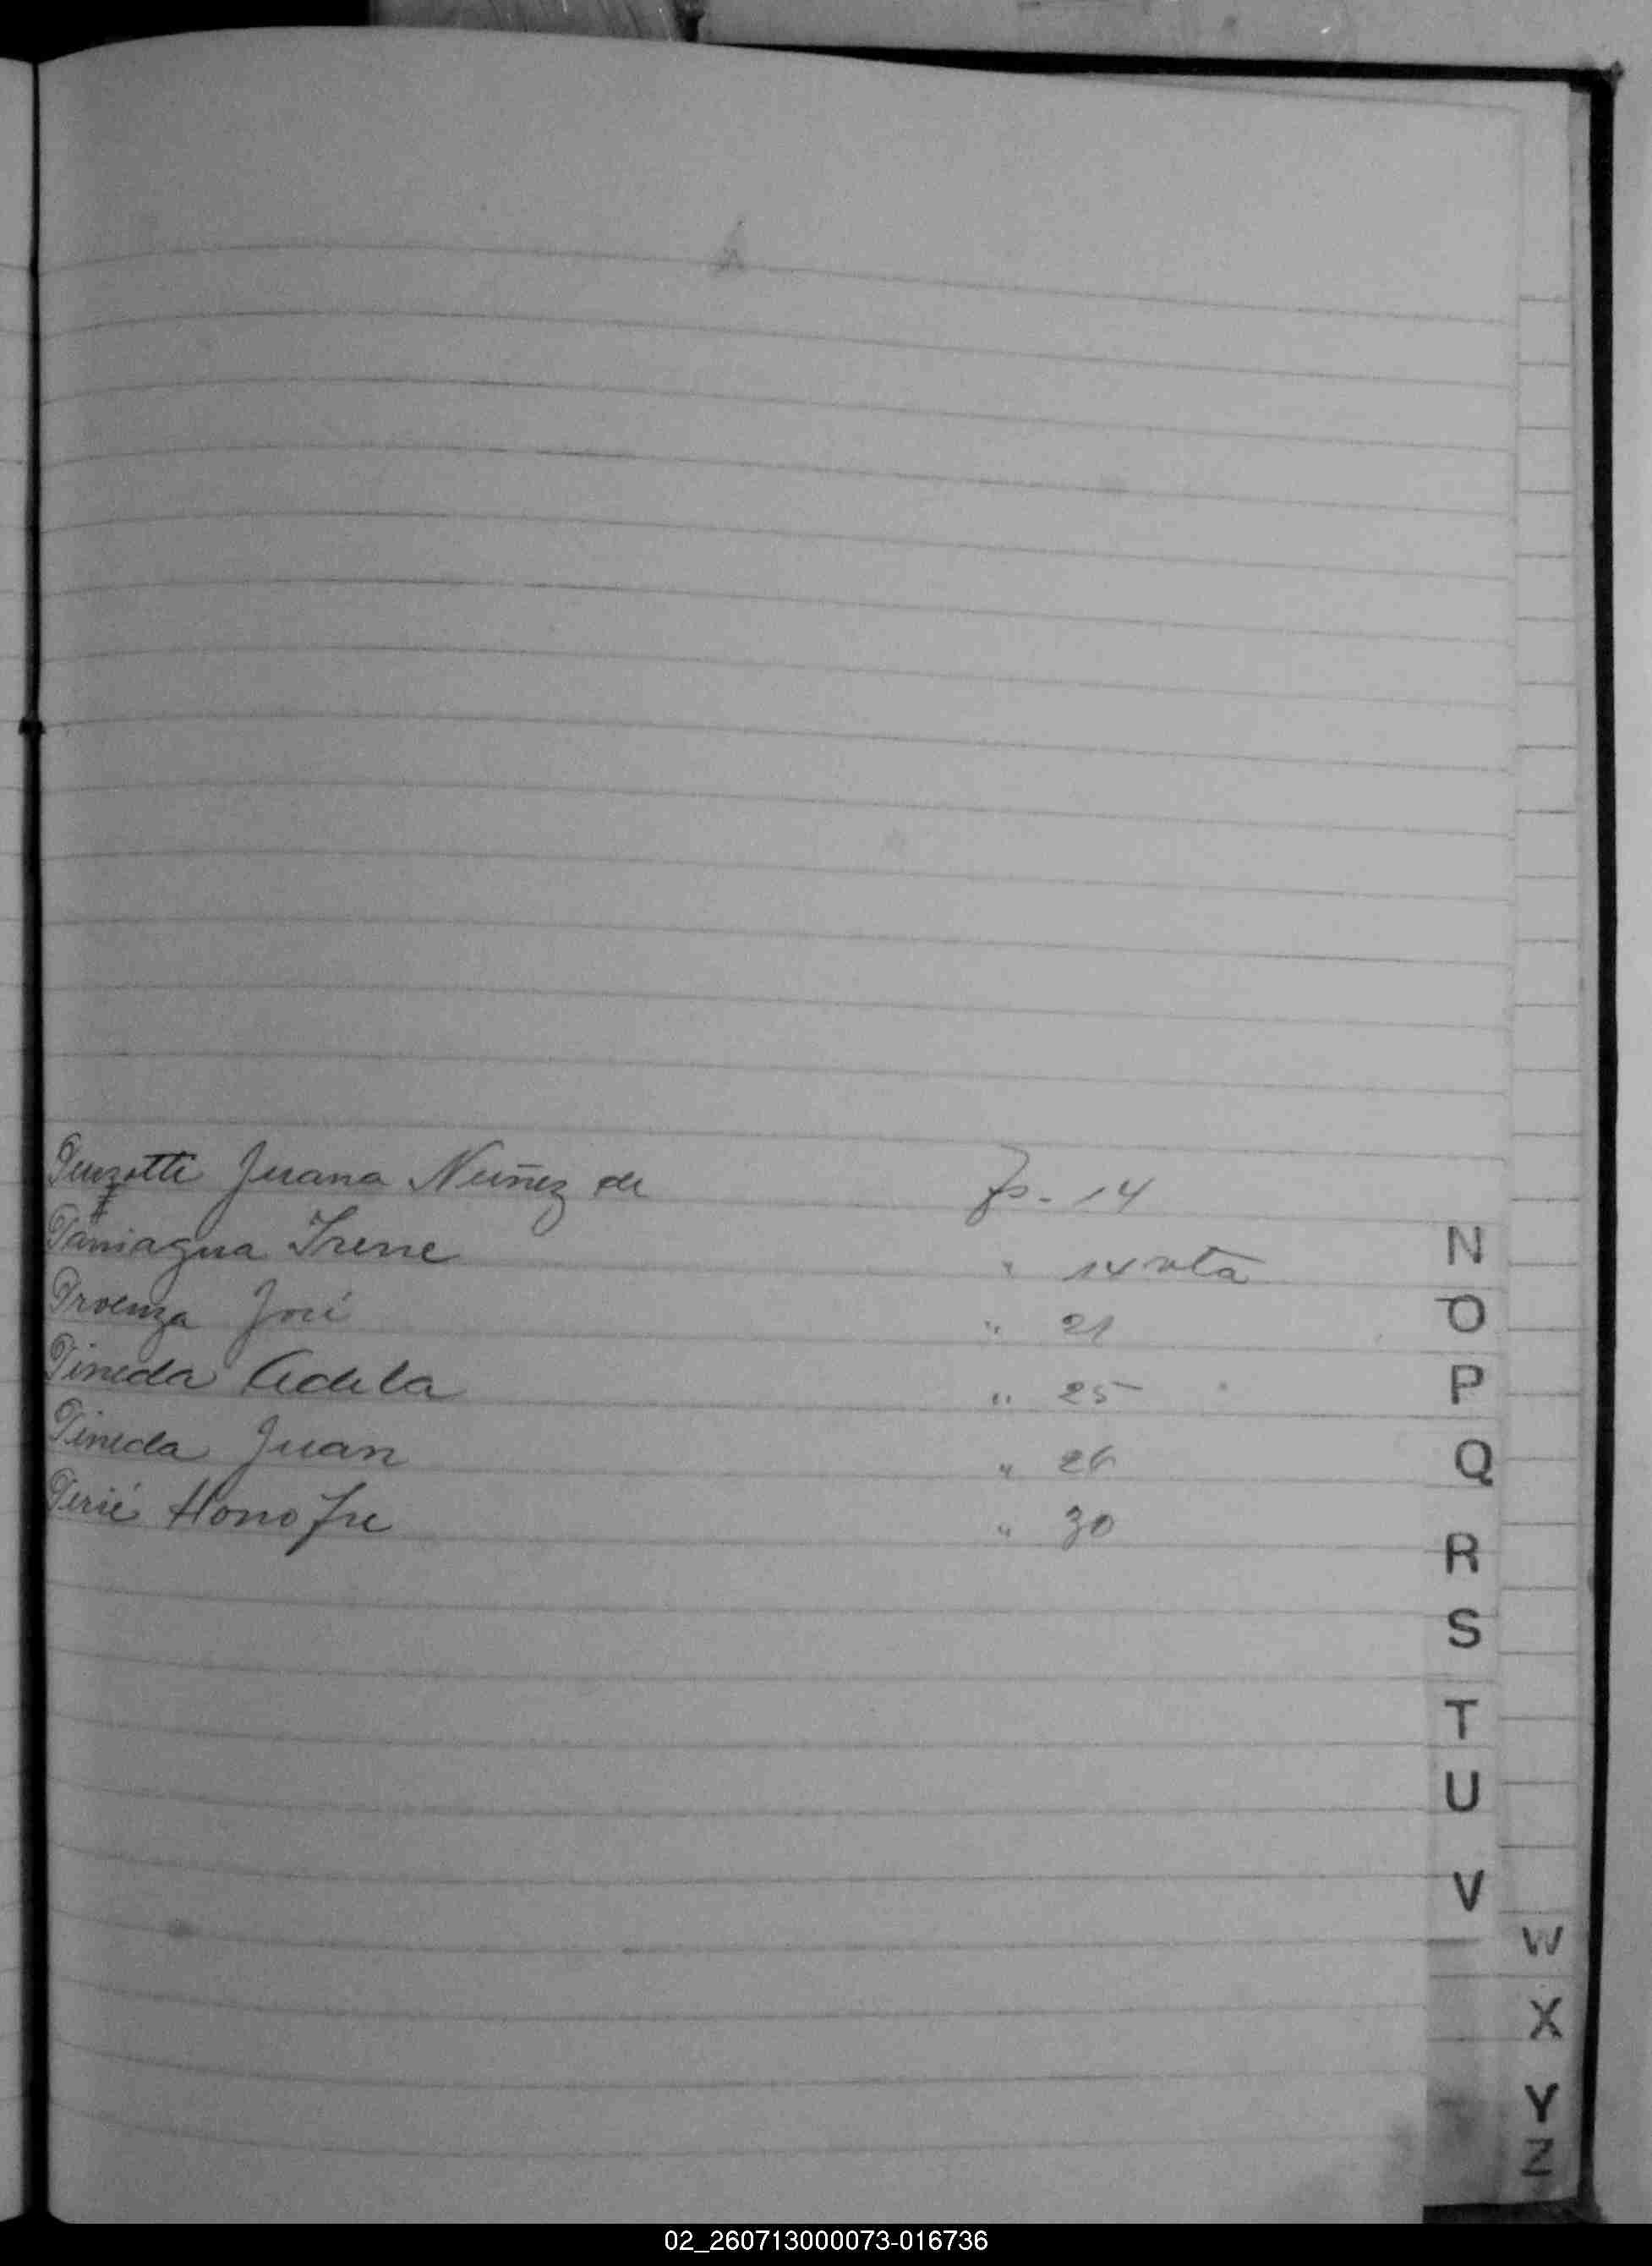 Penzotti Juana Nuñez de fs. 14
Paniagua Irene " 14 vta
Proenza José " 21
Pineda Adela " 25
Pineda Juan " 26
Perié Honofre " 30
N
O
P
Q
R
S
T
U
V
W
X
Y
Z
02_260713000073-016736